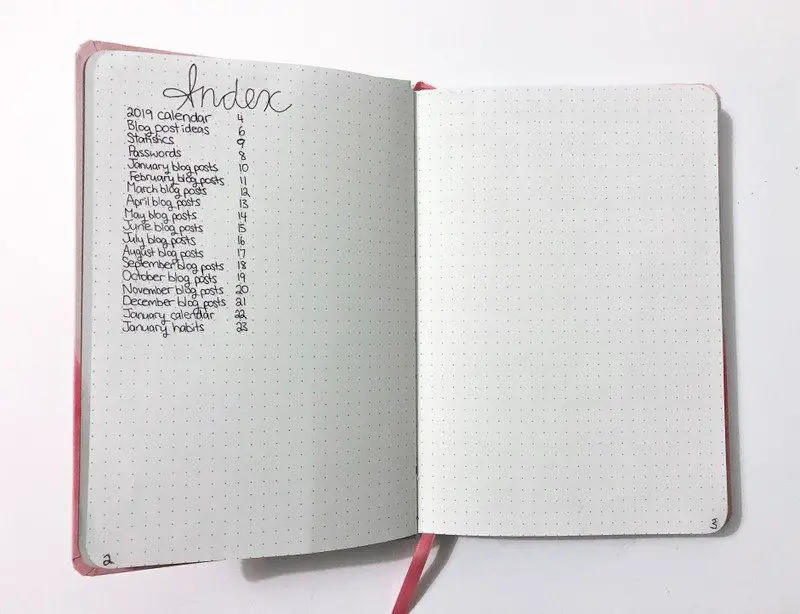 Index
2019 calendar 4
Blog post ideas 6
Statistics 9
Passwords 8
January blog posts 10
February blog posts 11
March blog posts 12
April blog posts 13
May blog posts 14
June blog posts 15
July blog posts 16
August blog posts 17
September blog posts 18
October blog posts 19
November blog posts 20
December blog posts 21
January calendar 22
January habits 23
2
3